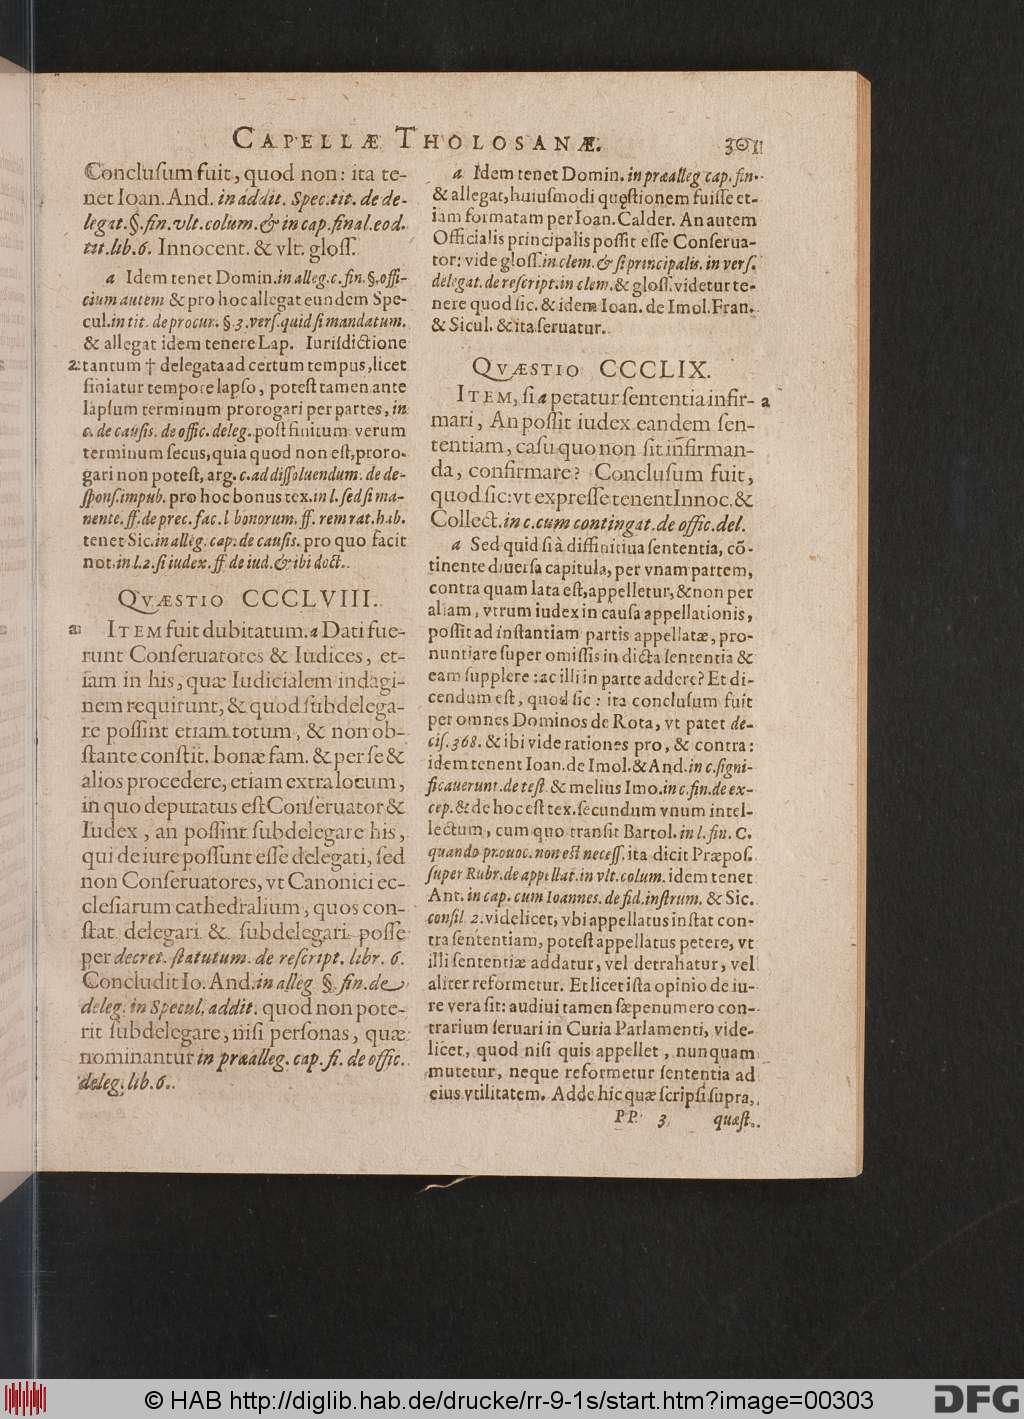 CAPELLÆ THOLOSANÆ. 301
Conclusum fuit, quod non: ita te-
net Ioan. And. in addit. Spec. tit. de de-
legat. §. fin. vlt. colum. & in cap. final. eod.
tit. lib. 6. Innocent. & vlt. gloss.
a Idem tenet Domin. in alleg. c. fin. §. offi-
cium autem & pro hoc allegat eundem Spe-
cul. in tit. de procur. § 3. vers. quid si mandatum.
& allegat idem tenere Lap. Iurisdictione
2 tantum † delegata ad certum tempus, licet
finiatur tempore lapso, potest tamen ante
lapsum terminum prorogari per partes, in
c. de causis. de offic. deleg. post finitum verum
terminum secus, quia quod non est, proro-
gari non potest, arg. c. ad dissoluendum. de de-
spons. impub. pro hoc bonus tex. in l. sed si ma-
nente. ff. de prec. fac. l. bonorum. ff. rem rat. hab.
tenet Sic. in alleg. cap. de causis. pro quo facit
not. in l. 2. si iudex. ff. de iud. & ibi doct.
QVÆSTIO CCCLVIII.
a ITEM fuit dubitatum. a Dati fue-
runt Conseruatores & Iudices, et-
iam in his, quæ Iudicialem indagi-
nem requirunt, & quod subdelega-
re possint etiam totum, & non ob-
stante constit. bonæ fam. & per se &
alios procedere, etiam extra locum,
in quo deputatus est Conseruator &
Iudex, an possint subdelegare his,
qui de iure possunt esse delegati, sed
non Conseruatores, vt Canonici ec-
clesiarum cathedralium, quos con-
stat delegari & subdelegari posse
per decret. statutum. de rescript. libr. 6.
Concludit Io. And. in alleg. §. fin. de
deleg. in Specul. addit. quod non pote-
rit subdelegare, nisi personas, quæ
nominantur in præalleg. cap. fi. de offic.
deleg. lib. 6.
a Idem tenet Domin. in præalleg cap. fin.
& allegat, huiusmodi quęstionem fuisse et-
iam formatam per Ioan. Calder. An autem
Officialis principalis possit esse Conserua-
tor: vide gloss. in clem. & si principalis. in vers.
delegat. de rescript. in clem. & gloss. videtur te-
nere quod sic. & idem Ioan. de Imol. Fran.
& Sicul. & ita seruatur.
QVÆSTIO CCCLIX.
ITEM, si a petatur sententia infir- a
mari, An possit iudex eandem sen-
tentiam, casu quo non sit infirman-
da, confirmare? Conclusum fuit,
quod sic: vt expresse tenent Innoc. &
Collect. in c. cum contingat. de offic. del.
a Sed quid si à diffinitiua sententia, cō-
tinente diuersa capitula, per vnam partem,
contra quam lata est, appelletur, & non per
aliam, vtrum iudex in causa appellationis,
possit ad instantiam partis appellatæ, pro-
nuntiare super omissis in dicta sententia &
eam supplere: ac illi in parte addere? Et di-
cendum est, quod sic: ita conclusum fuit
per omnes Dominos de Rota, vt patet de-
cis. 368. & ibi vide rationes pro, & contra:
idem tenent Ioan. de Imol. & And. in c. signi-
ficauerunt. de test. & melius Imo. in c. fin. de ex-
cep. & de hoc est tex. secundum vnum intel-
lectum, cum quo transit Bartol. in l. fin. C.
quando prouoc. non est necess. ita dicit Præpos.
super Rubr. de appellat. in vlt. colum. idem tenet
Ant. in cap. cum Ioannes. de fid. instrum. & Sic.
consil 2. videlicet, vbi appellatus instat con-
tra sententiam, potest appellatus petere, vt
illi sententiæ addatur, vel detrahatur, vel
aliter reformetur. Et licet ista opinio de iu-
re vera sit: audiui tamen sæpenumero con-
trarium seruari in Curia Parlamenti, vide-
licet, quod nisi quis appellet, nunquam
mutetur, neque reformetur sententia ad
eius vtilitatem. Adde hic quæ scripsi supra,
PP 3 quæst.
© HAB http://diglib.hab.de/drucke/rr-9-1s/start.htm?image=00303
DFG